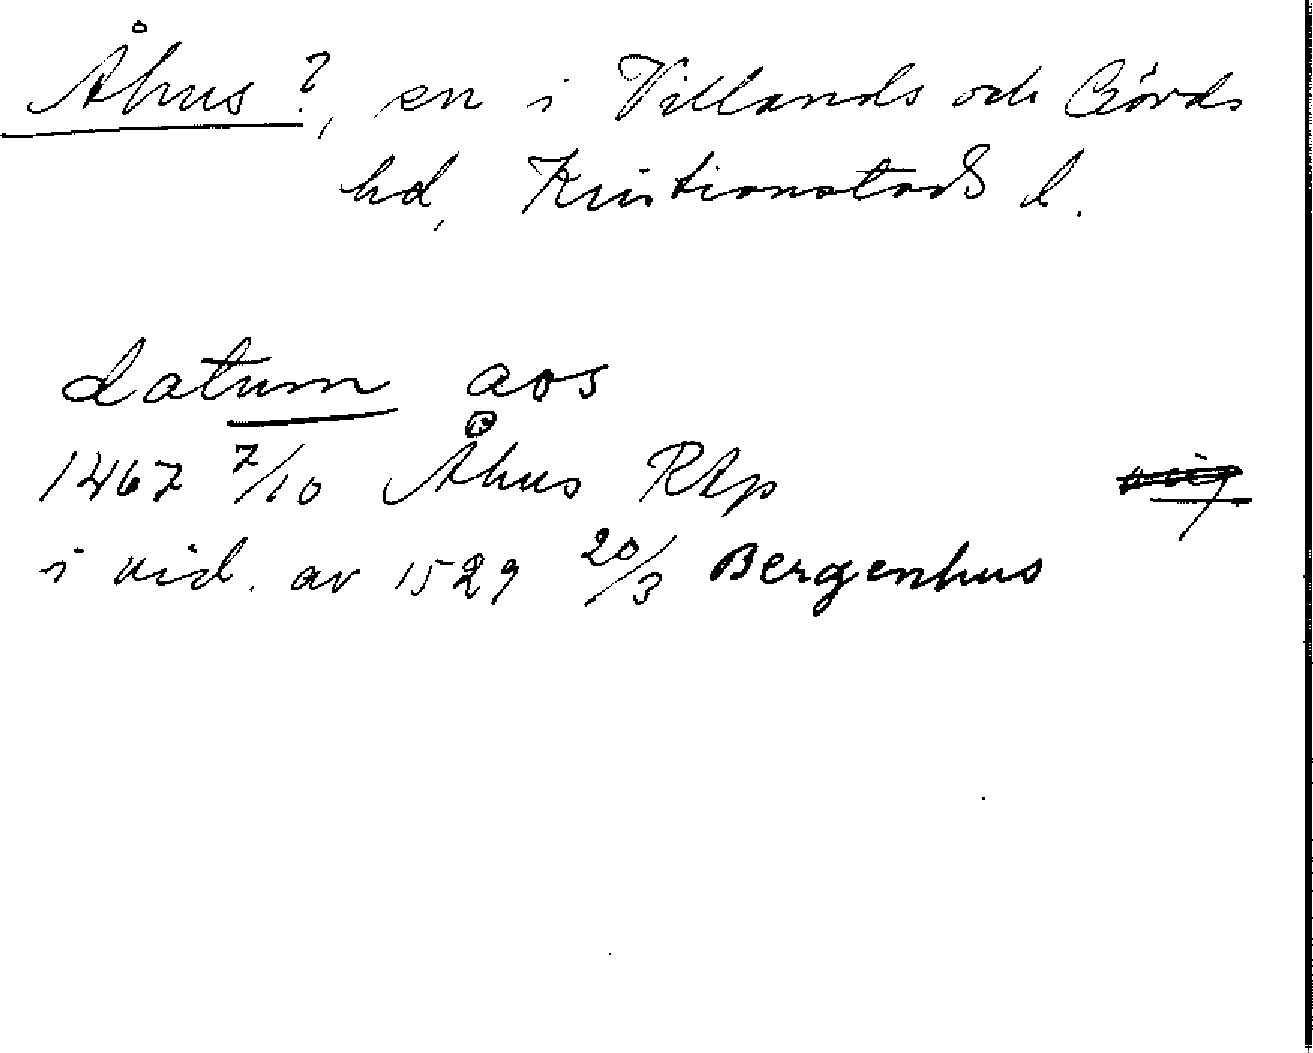 Åhus?, sn i Villands och Gärds
hd, Kristianstads l.
datum aos
1467 7/10 Åhus RAp
i vid. av 1529 20/3 Bergenhus